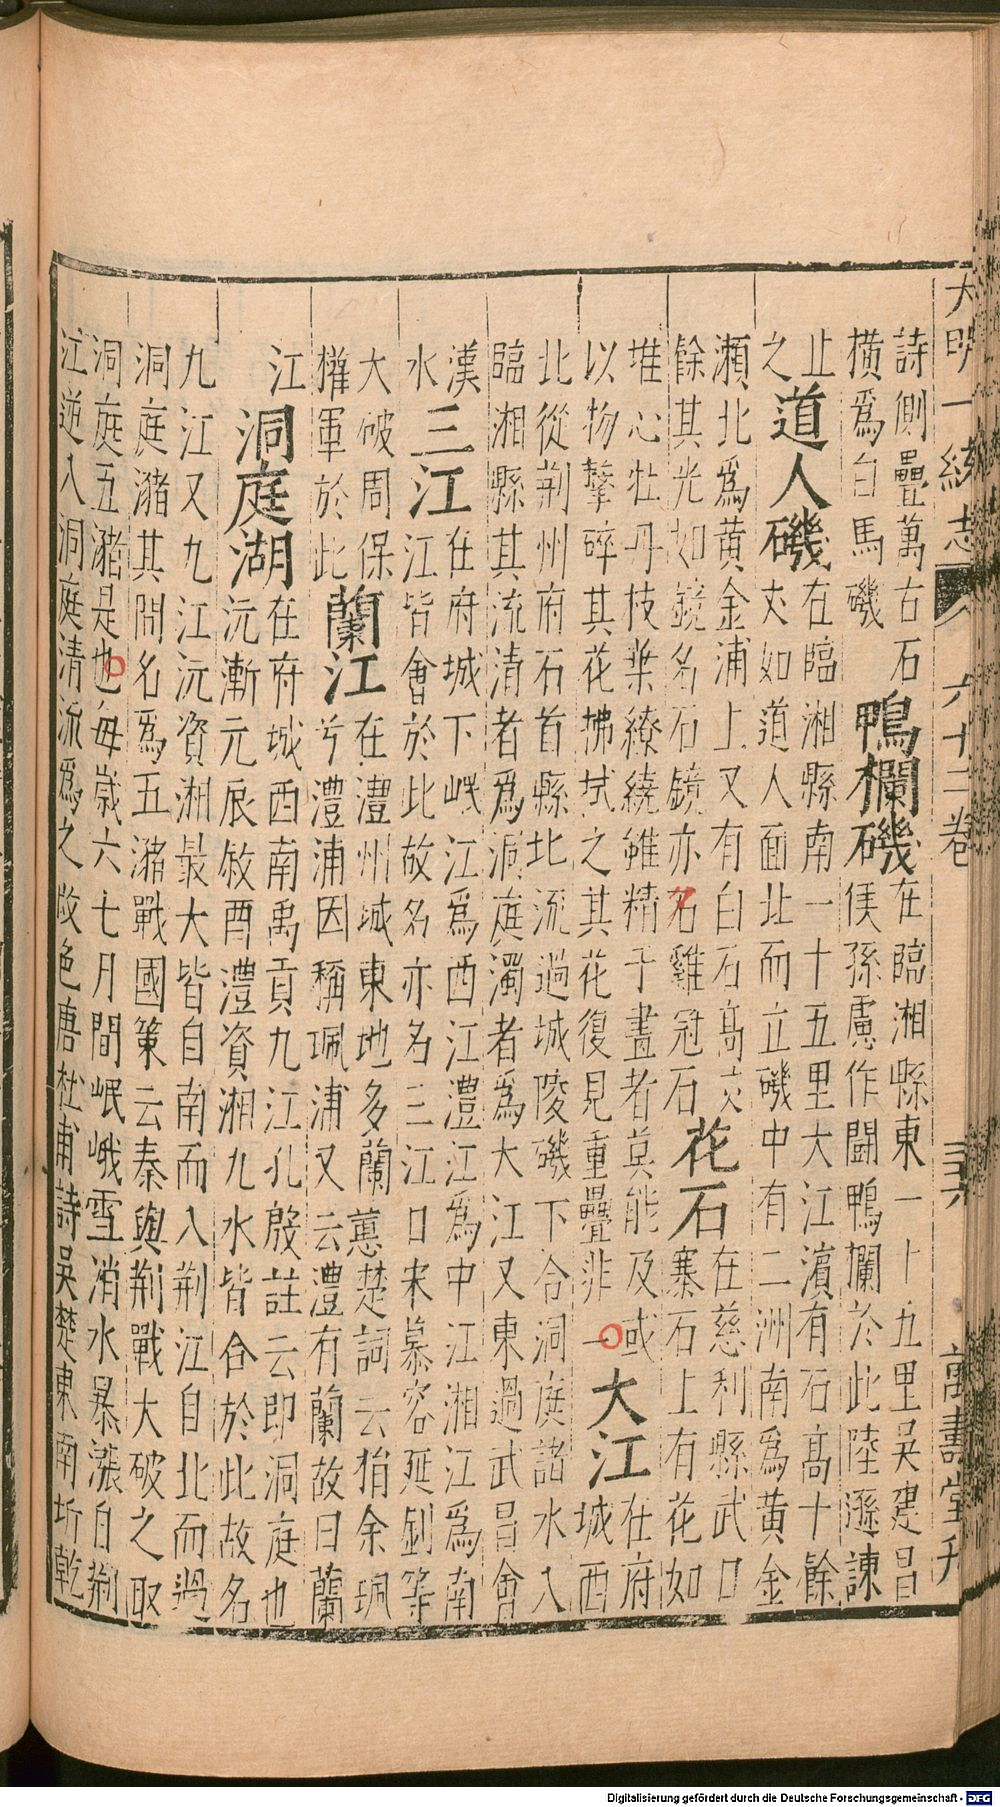 大明一統志 六十二卷 三六 萬壽堂刋
詩側壘萬古石 在臨湘縣東一十五里吳建昌
橫爲白馬磯 鴨欄磯 侯孫慮作鬭鴨欄於此陸遜諫
止 在臨湘縣南一十五里大江濵有石髙十餘
之 道人磯 丈如道人面北而立磯中有二洲南爲黄金
瀬北爲黄金浦上又有白石髙丈 在慈利縣武口
餘其光如鏡名石鏡亦名雞冠石 花石 寨石上有花如
堆心牡丹枝葉繚繞雖精于畫者莫能及或 在府
以物擊碎其花拂拭之其花復見重疊非一 大江 城西
北從荆州府石首縣北流過城陵磯下合洞庭諸水入
臨湘縣其流清者爲洞庭濁者爲大江又東過武昌會
漢 在府城下岷江爲西江澧江爲中江湘江爲南
水 三江 江皆會於此故名亦名三江口宋慕容延釗等
大破周保 在澧州城東地多蘭蕙楚詞云捐余珮
權軍於此 蘭江 兮澧浦因稱珮浦又云澧有蘭故曰蘭
江 在府城西南禹貢九江孔殷註云即洞庭也
洞庭湖 沅漸元辰敘酉澧資湘九水皆合於此故名
九江又九江沅資湘最大皆自南而入荆江自北而過
洞庭瀦其間名爲五瀦戰國策云秦與荆戰大破之取
洞庭五瀦是也每歳六七月間岷峨雪消水暴漲自荆
江逆入洞庭清流爲之改色唐杜甫詩吳楚東南坼乾
Digitalisierung gefördert durch die Deutsche Forschungsgemeinschaft - DFG